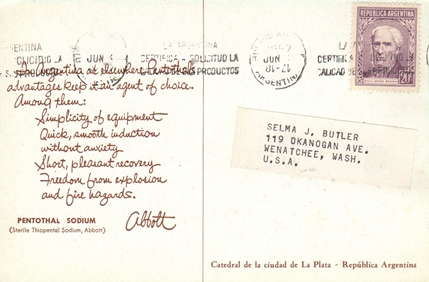 REPUBLICA ARGENTINA
LA ARGENTINA
CERTIFICA - SOLICITUD LA
CALIDAD DE SUS PRODUCTOS
JUN
ARGENTINA
20c
In Argentina as elsewhere, Pentothal's
advantages keep it an agent of choice.
Among them:
Simplicity of equipment
Quick, smooth induction
without anxiety
Short, pleasant recovery
Freedom from explosion
and fire hazards.
PENTOTHAL SODIUM
(Sterile Thiopental Sodium, Abbott)
Abbott
SELMA J. BUTLER
119 OKANOGAN AVE.
WENATCHEE, WASH.
U.S.A.
Catedral de la ciudad de La Plata - República Argentina